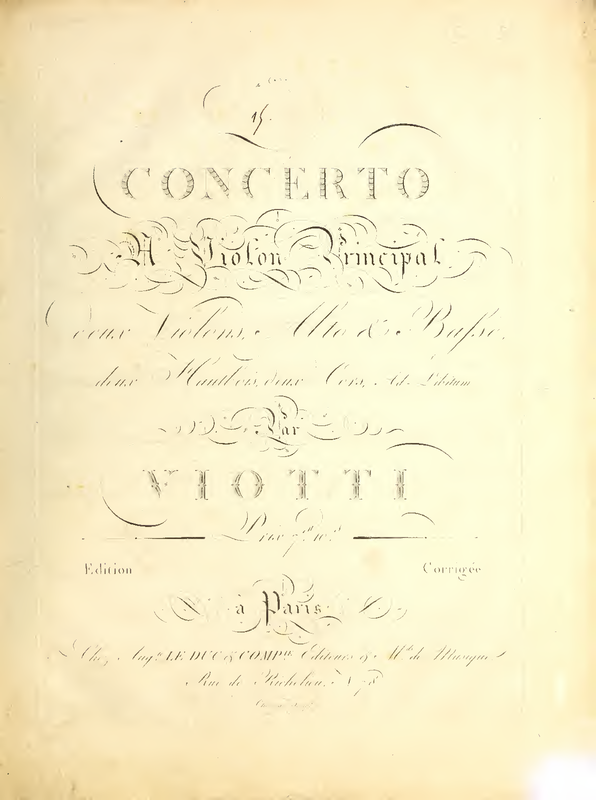 15
CONCERTO
A Violon Principal
deux Violons, Alto & Basse,
deux Hautbois, deux Cors, Ad Libitum
Par
VIOTTI
Prix 7#
Edition Corrigée
à Paris
Chez Augte LE DUC & COMPie Editeurs & Mds de Musique
Rue de Richelieu, N. 78